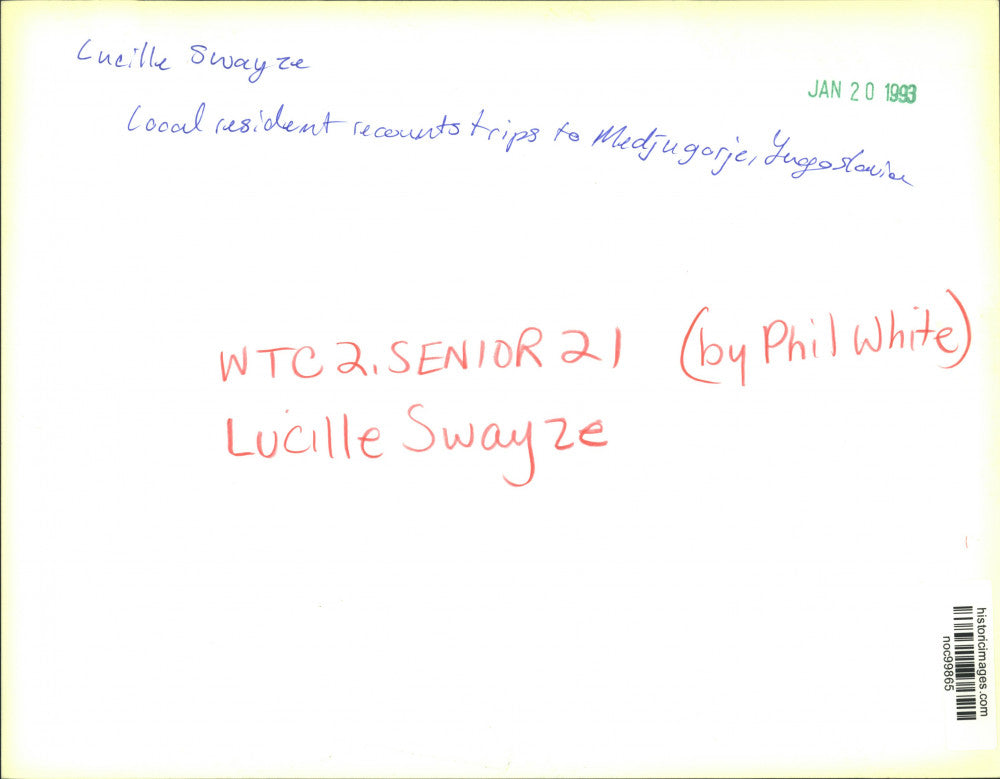 Lucille Swayze
JAN 20 1993
Local resident recounts trips to Medjugorje, Yugoslavia
WTC2.SENIOR21 (by Phil White)
Lucille Swayze
historicimages.com
noc99865